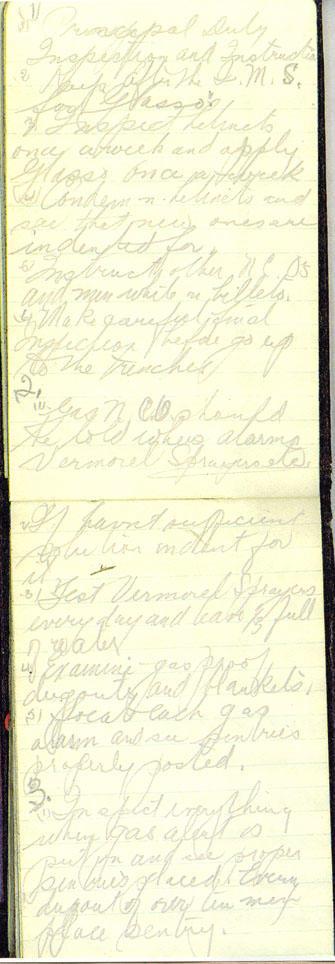 1/
1) Principal Duty
Inspection and Instruction
2 Keep after the Q. M. S.
for Glasso's
3 Inspect helmets
once a week and apply
Glasso once a week
4 Condemn helmets and
see that new ones are
indented for.
5 Instruct other N.C.Os
and men while in billets.
6 Make careful final
inspection before go up
to the trenches
2.
1) Gas N.C.O. should
be told where alarms
Vermorel Sprayers etc.
2 If havnt sufficient
solution indent for
it
3) Test Vermorel Sprayers
every day and have 2/3 full
of water
4. Examine gas proof
dugouts and blankets.
5) Locate each gas
alarm and see sentries
properly posted.
3.
1) Inspect everything
when gas alert is
put on and see proper
sentries placed. Every
dugout of over ten men
place sentry.